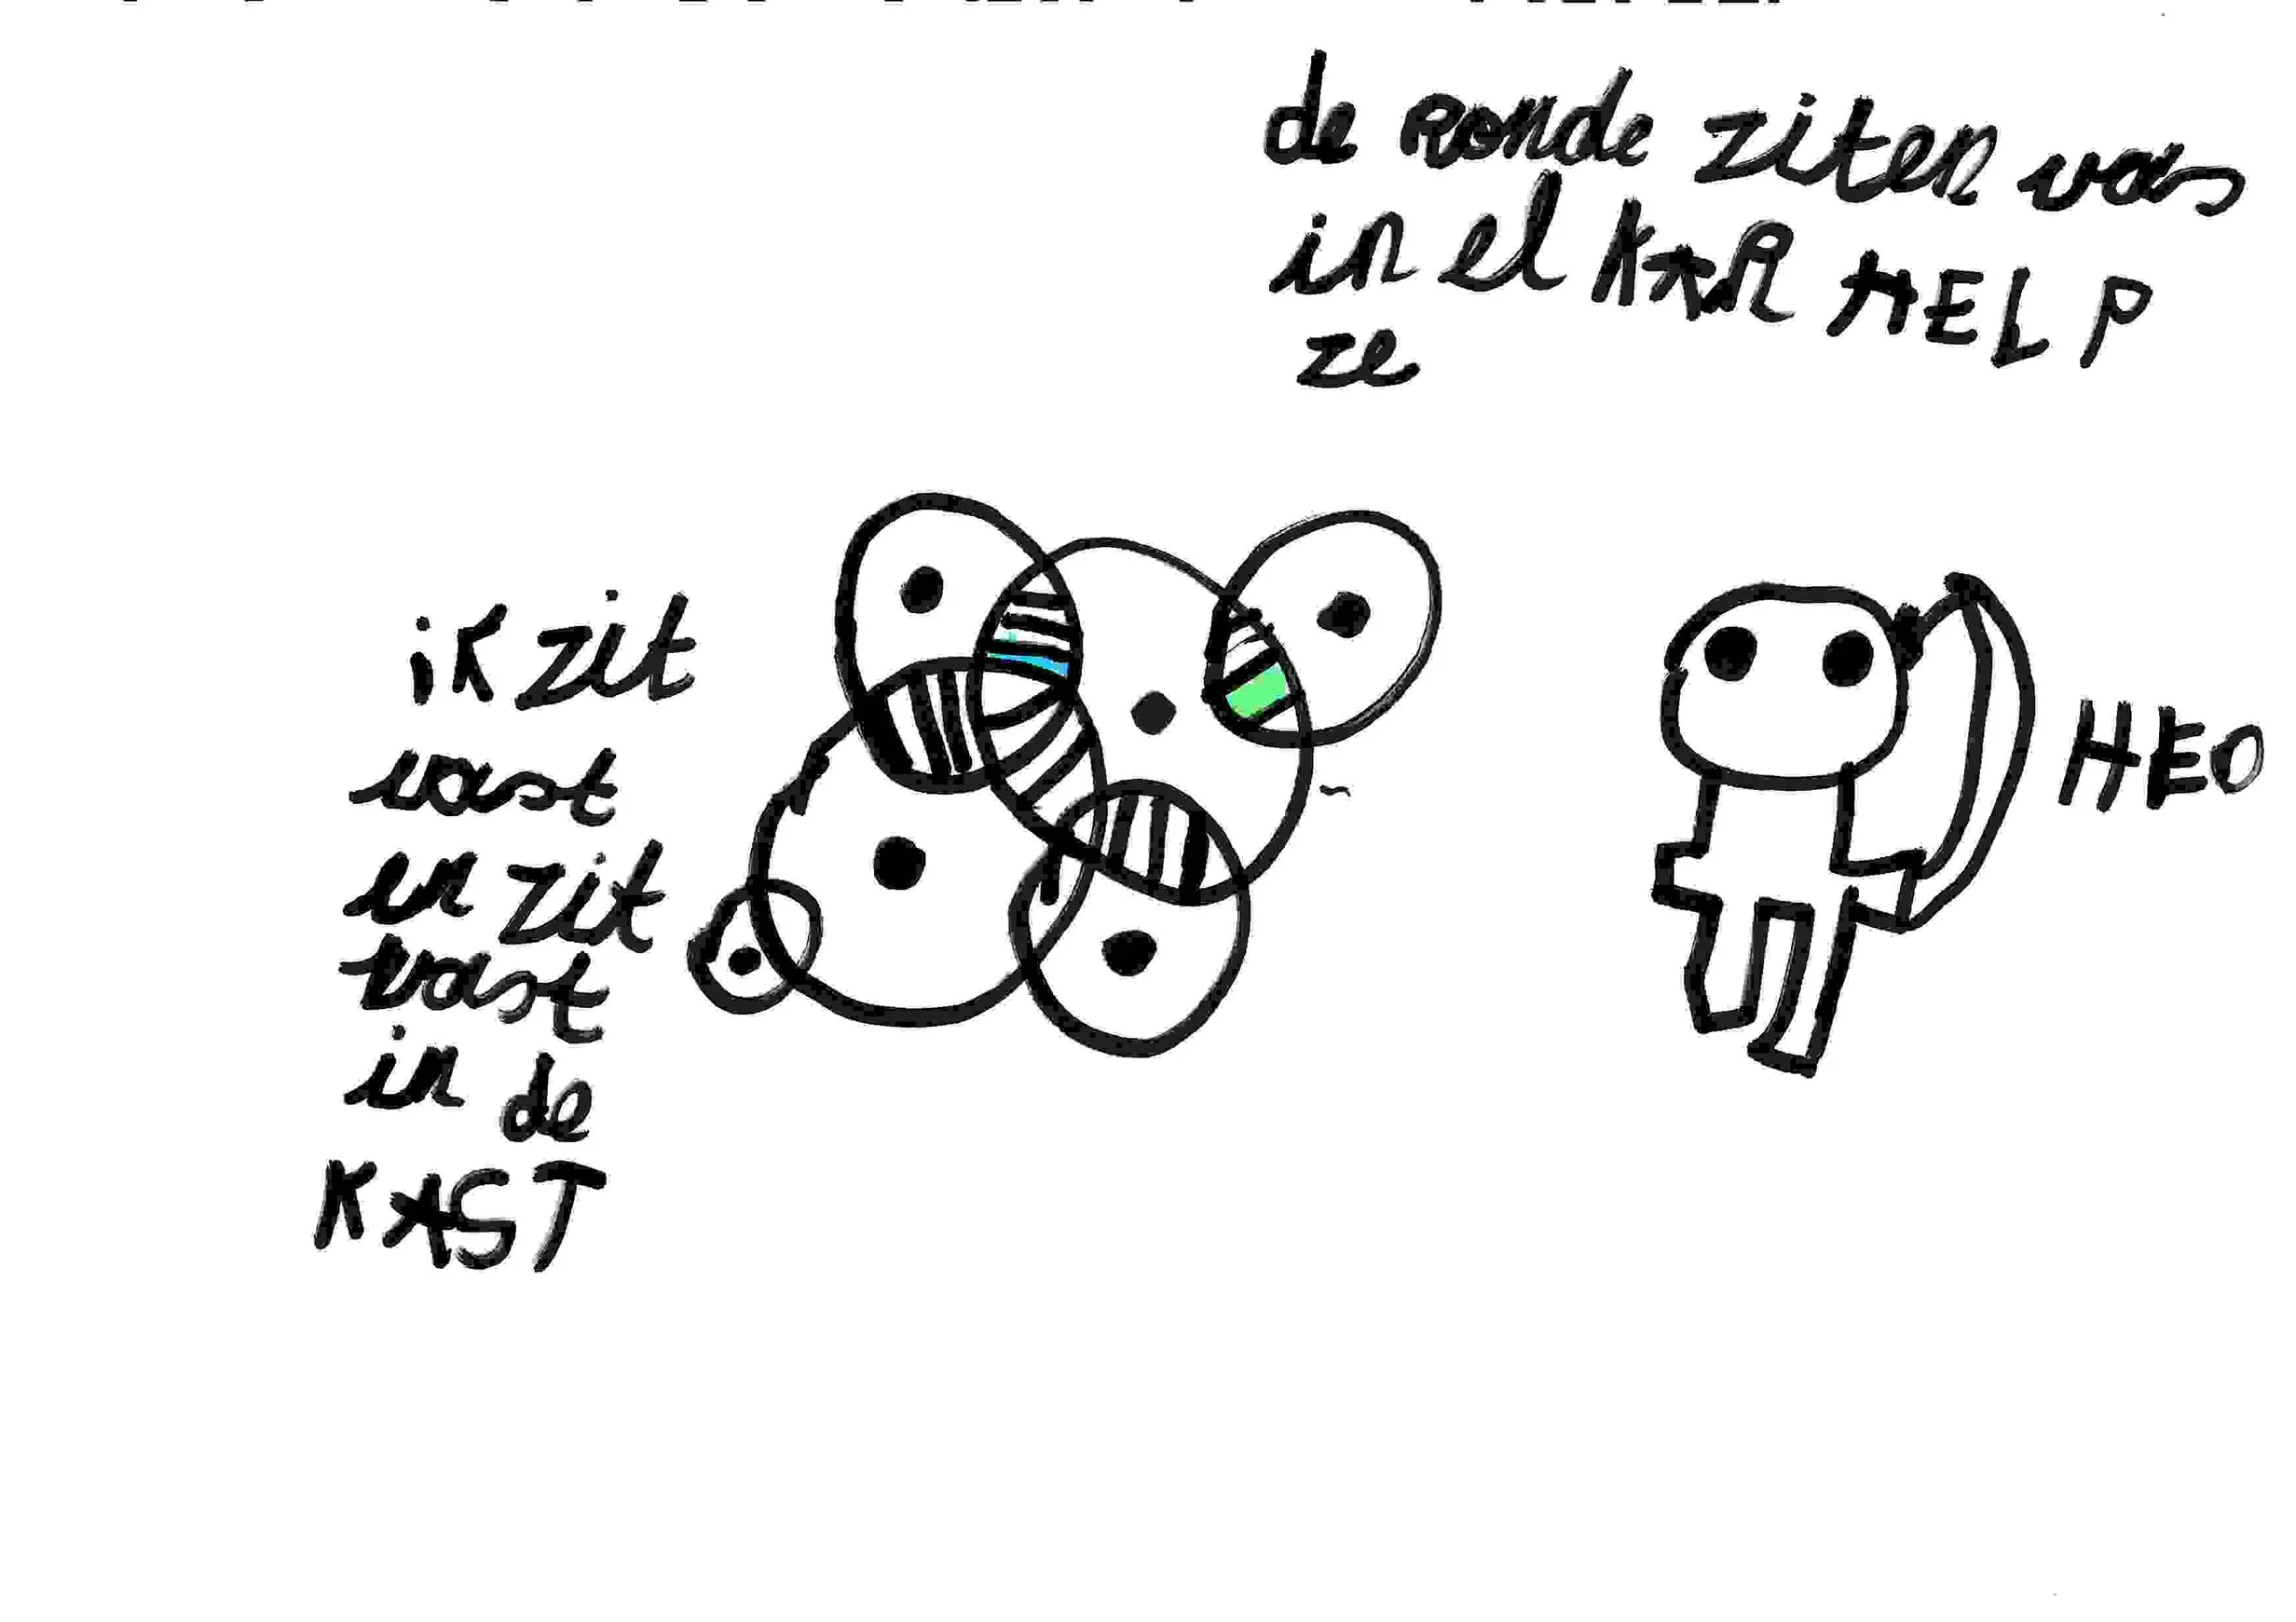 de Ronde ziten vas
in el KAR HELP
ze
ik zit
vast
en zit
vast
in de
KAST
HEO